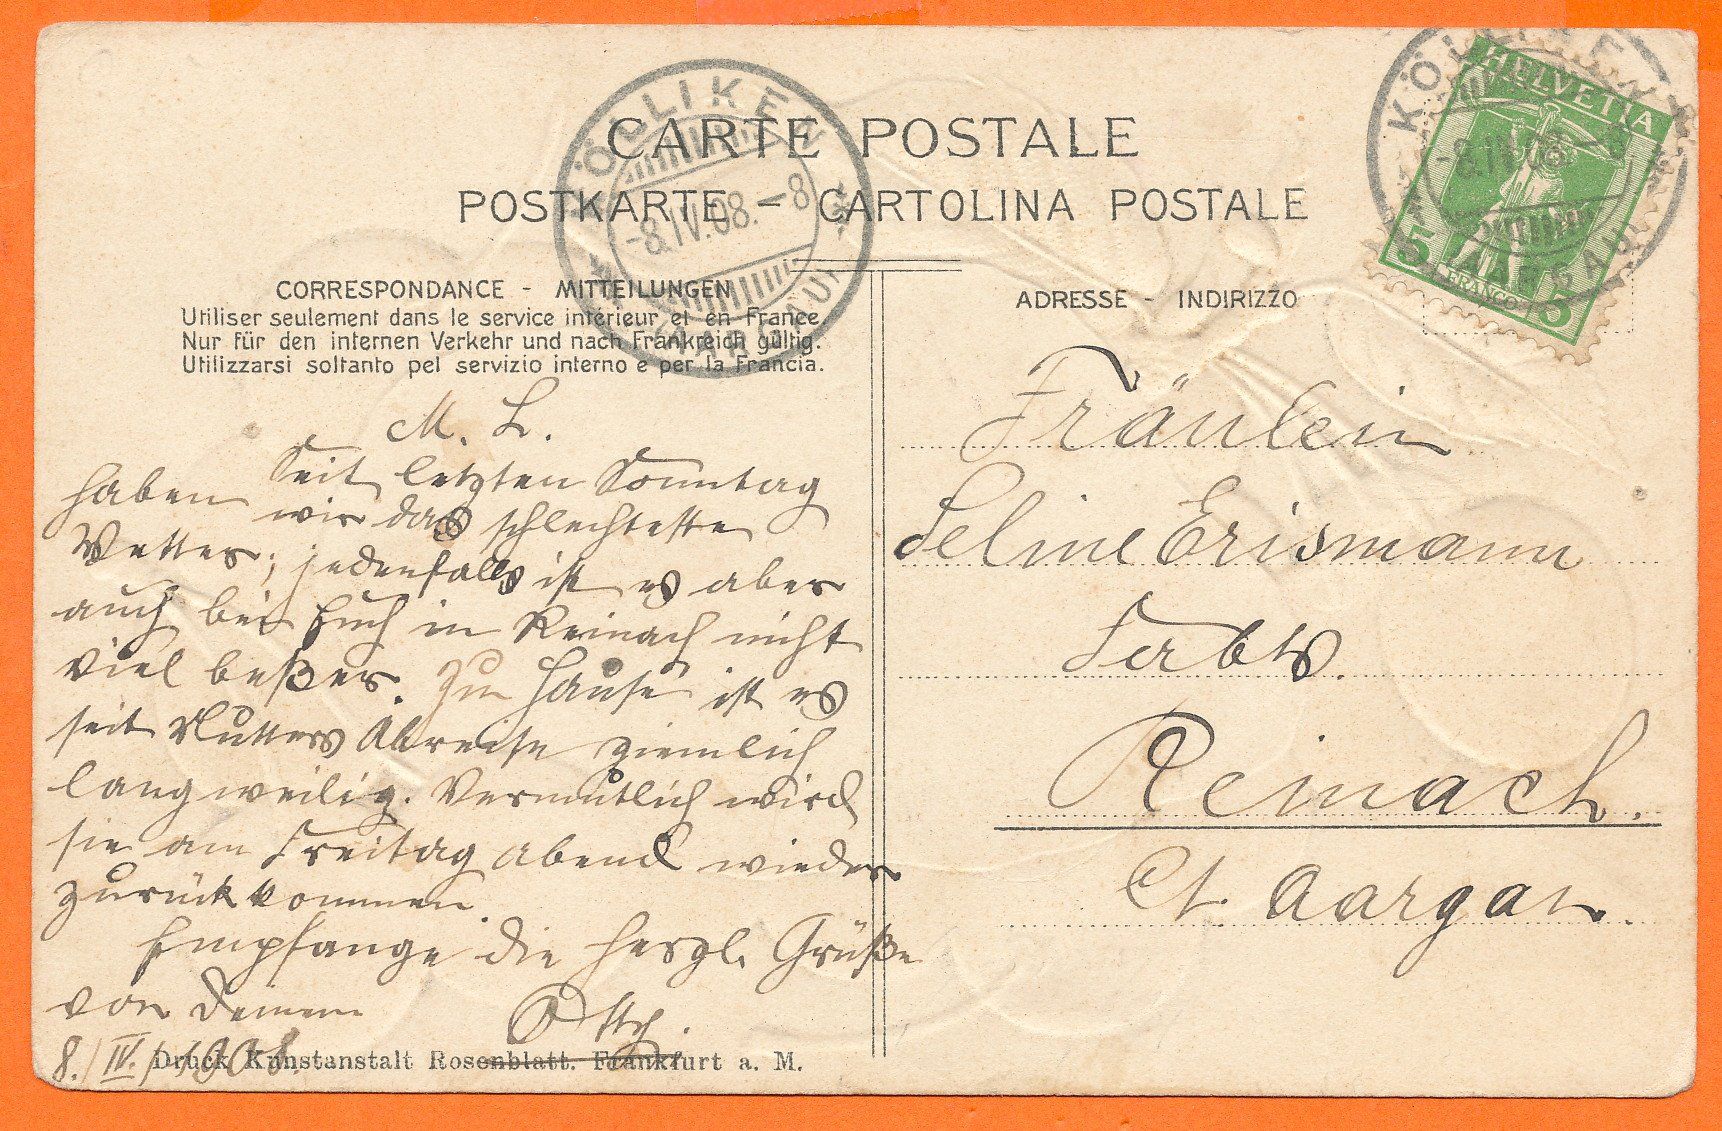 CARTE POSTALE
POSTKARTE - CARTOLINA POSTALE
KÖLLIKEN
-8.IV.08.-8
(AARGAU)
KÖLLIKEN
-8.IV.08.-8
(AARGAU)
HELVETIA
5 5
FRANCO
CORRESPONDANCE - MITTEILUNGEN
Utiliser seulement dans le service intérieur et en France.
Nur für den internen Verkehr und nach Frankreich gültig.
Utilizzarsi soltanto pel servizio interno e per la Francia.
ADRESSE - INDIRIZZO
M. L.
Seit letzten Sonntag
haben wir das schlechteste
Wetter; jedenfalls ist es aber
auch bei Euch in Reinach nicht
viel beßer. Zu Hause ist es
seit Mutters Abreise ziemlich
langweilig. Vermutlich wird
sie am Freitag abend wieder
zurückkommen.
Empfange die herzl. Grüße
von Deinem
8./IV. 1908.
Fräulein
Seline Erismann
Reinach.
Ct. Aargau.
Druck Kunstanstalt Rosenblatt. Frankfurt a. M.